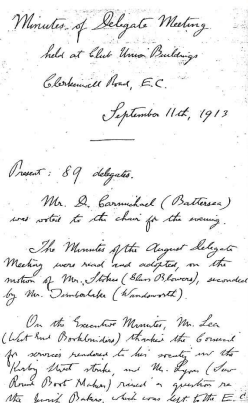 Minutes of Delegate Meeting
held at Club Union Buildings
Clerkenwell Road, E.C.
September 11th, 1913
Present: 89 delegates.
Mr. D. Carmichael (Battersea)
was voted to the chair for the evening.
The Minutes of the August Delegate
Meeting were read and adopted, on the
motion of Mr. Stokes (Glass Blowers), seconded
by Mr. Timberlake (Wandsworth).
On the Executive Minutes, Mr. Lea
(West End Bookbinders) thanked the Council
for services rendered to his society in the
Kirby Street strike, and Mr. Dyson (Sew
Round Boot Makers) raised a question re
the Jewish Bakers, which was left to the E.C.